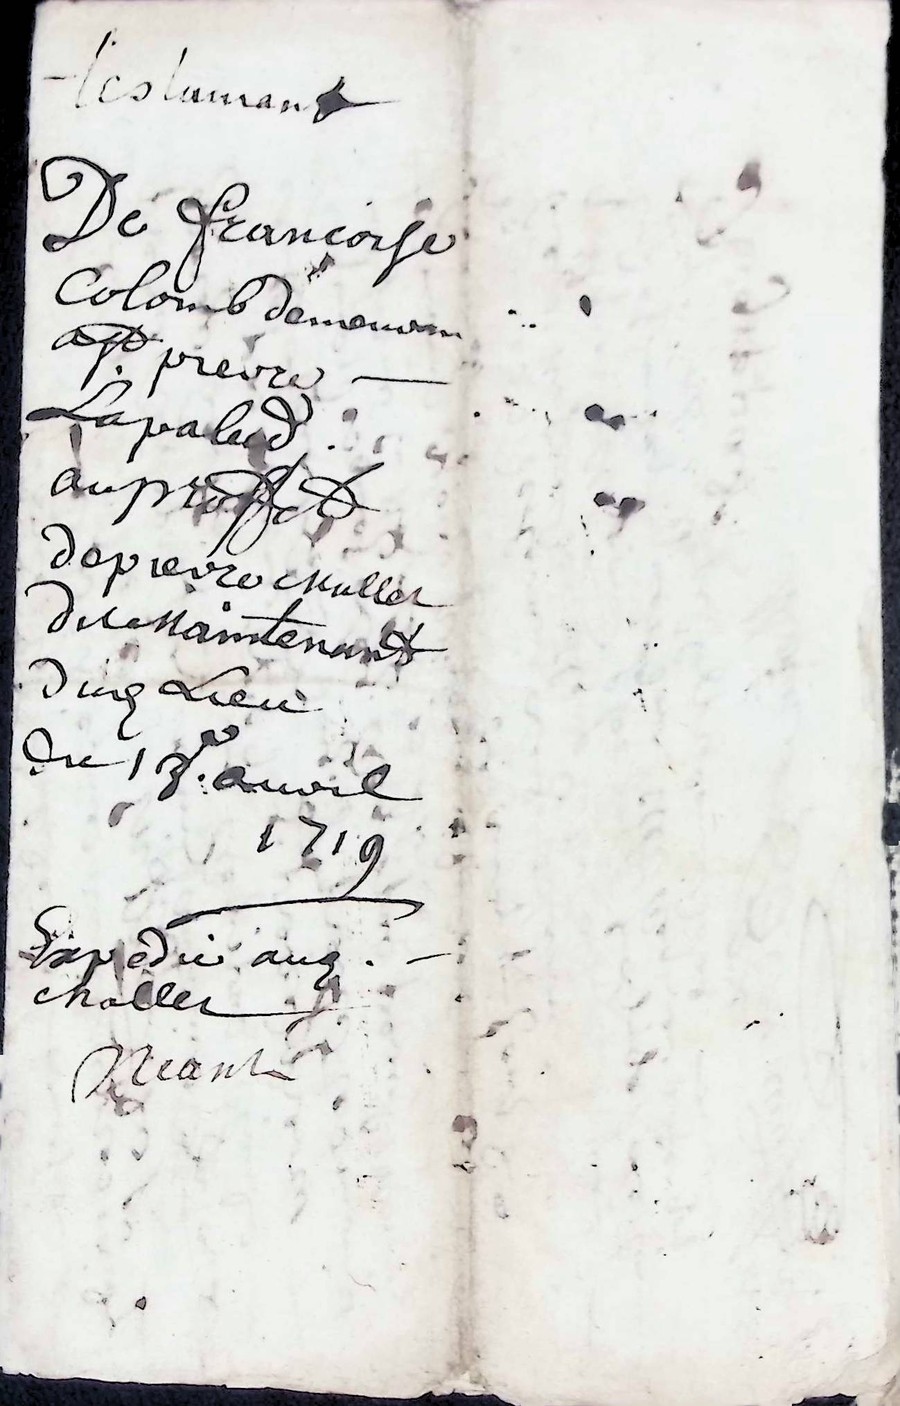 testamant
De francoise
Colomb demeuran
a St. pierre
Lapalud.
au proffit
de pierre Muller
du Maintenant
dud Lieu
du 13e. auvril
1719
Expedié aud.
Muller
Neant